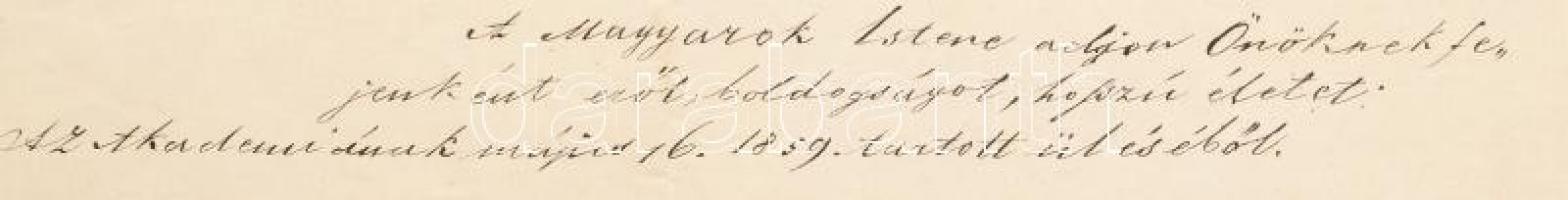 A Magyarok Istene adjon Önöknek fe„
jenként erőt, boldogságot, hoszszú életet.
Az Akademiának május 16. 1859. tartott üléséből.
darabanth